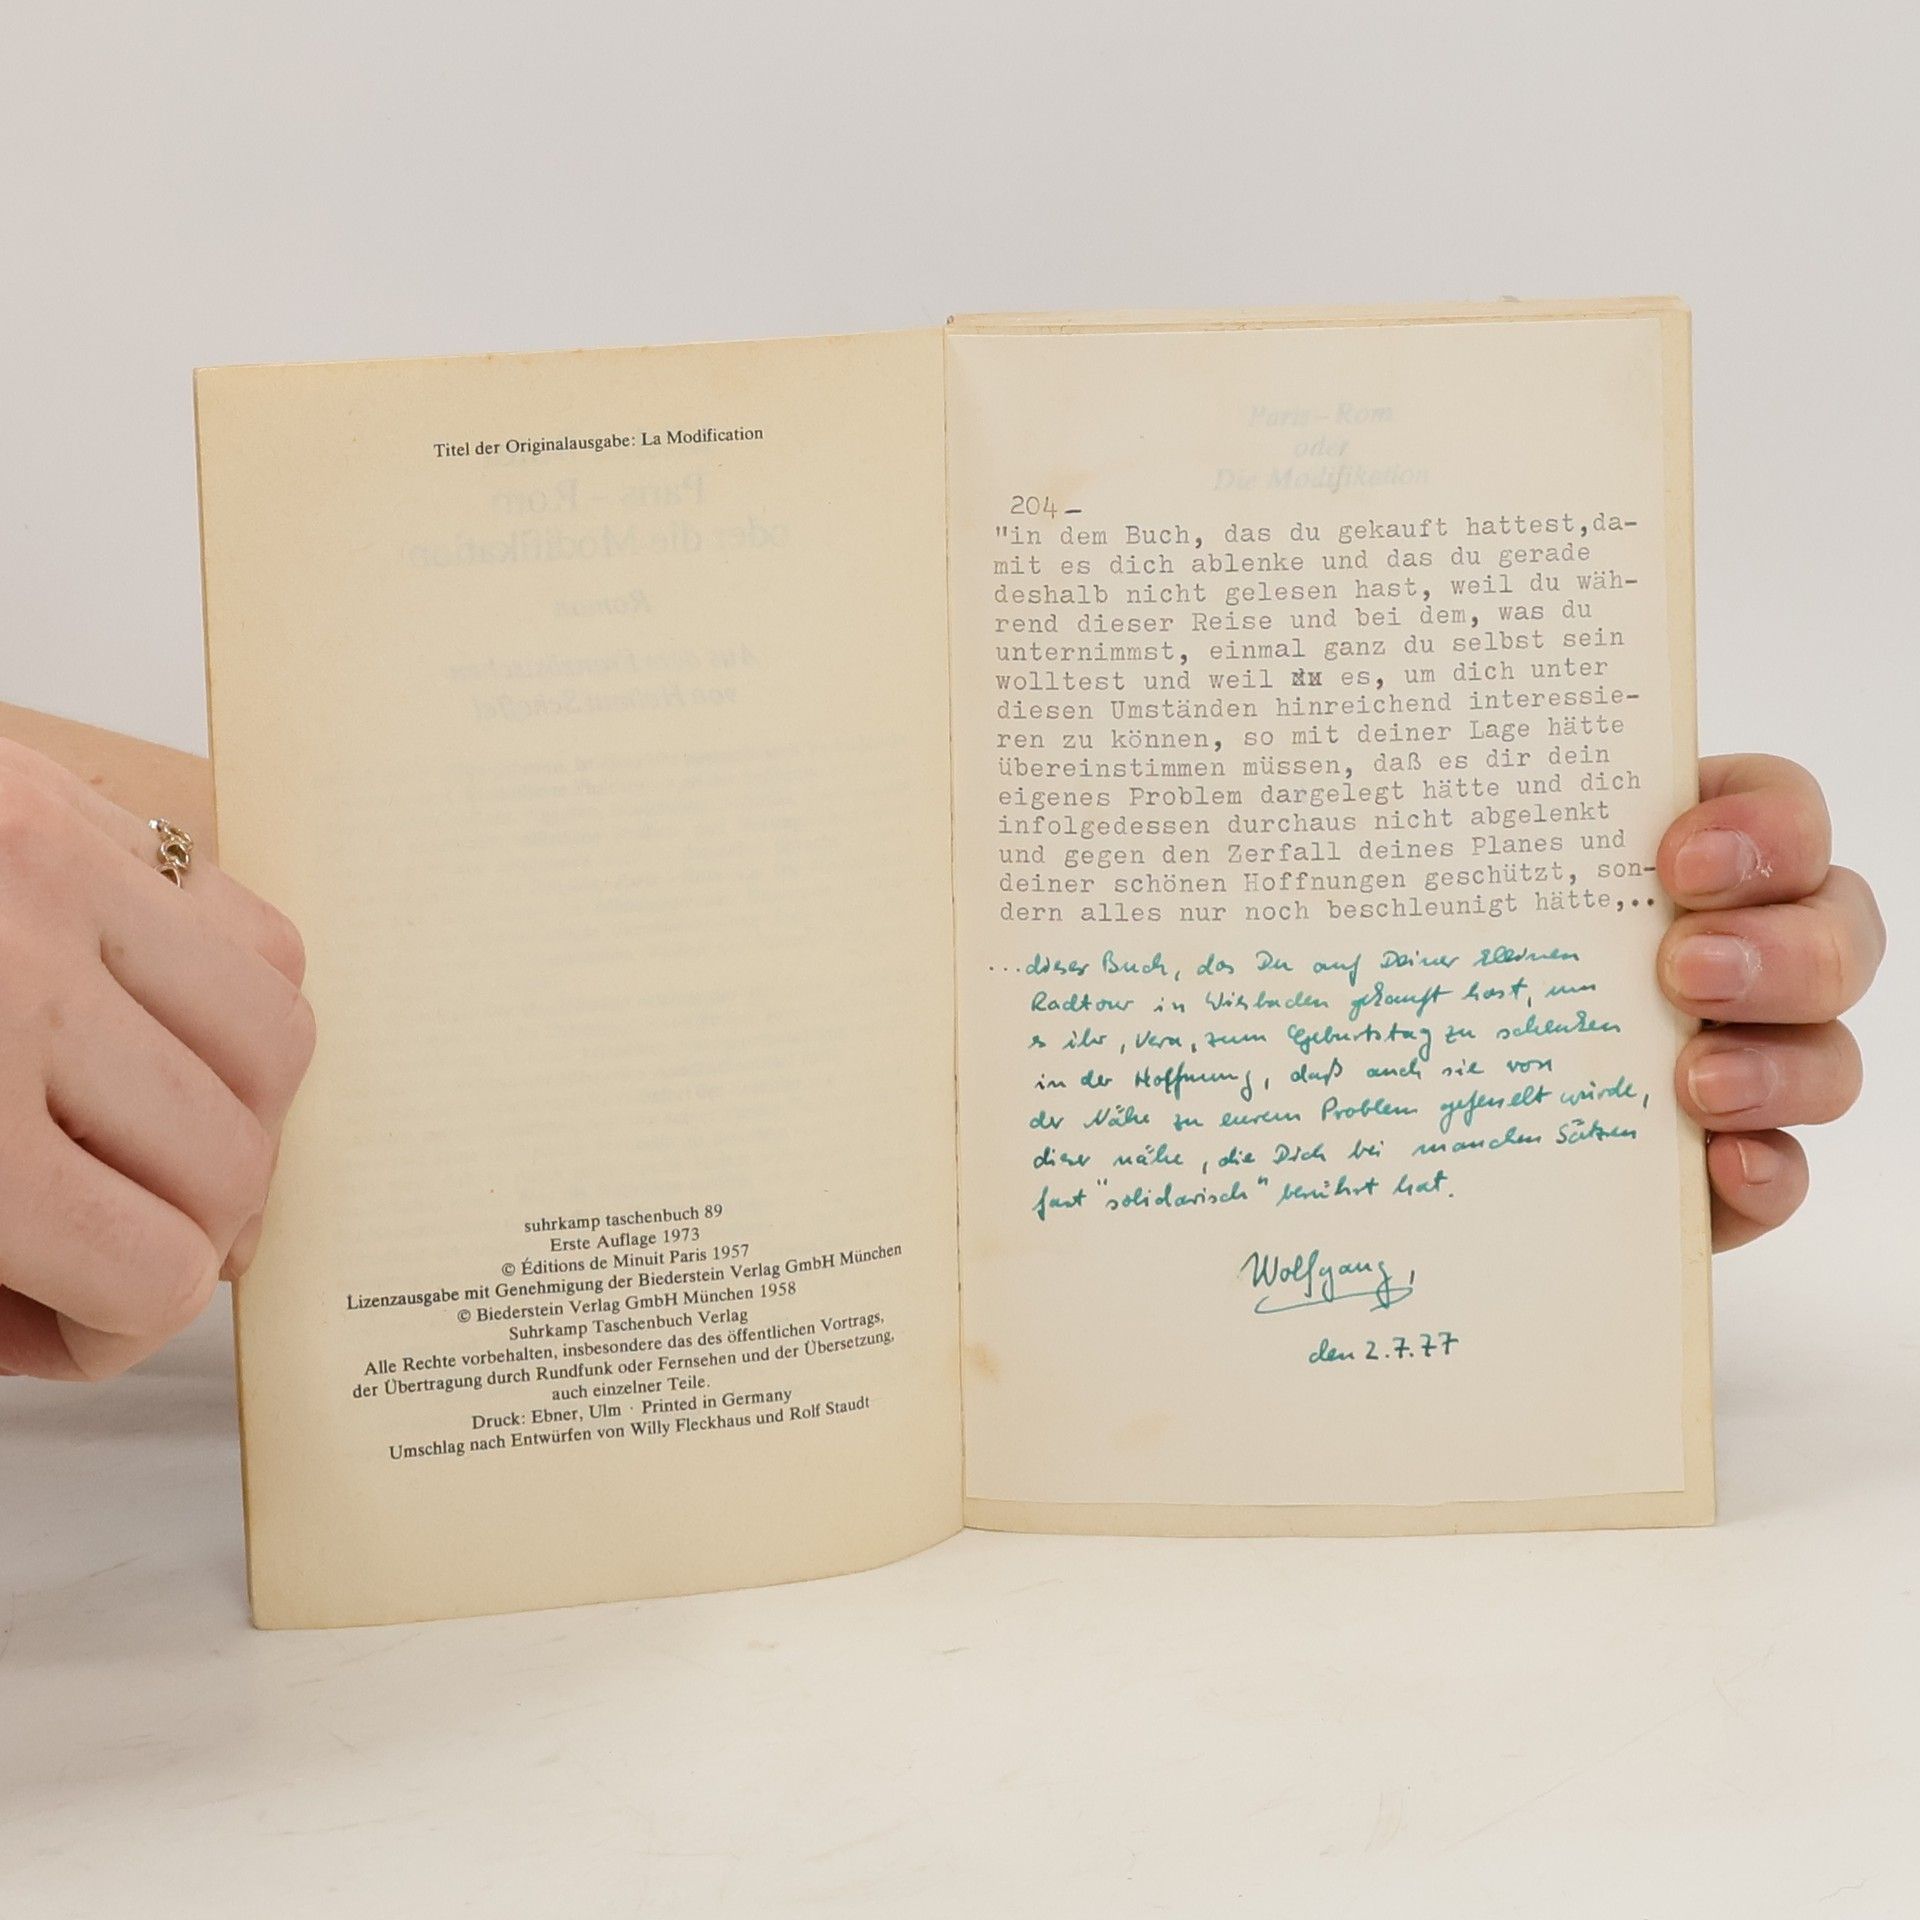 Titel der Originalausgabe: La Modification
suhrkamp taschenbuch 89
Erste Auflage 1973
© Éditions de Minuit Paris 1957
Lizenzausgabe mit Genehmigung der Biederstein Verlag GmbH München
© Biederstein Verlag GmbH München 1958
Suhrkamp Taschenbuch Verlag
Alle Rechte vorbehalten, insbesondere das des öffentlichen Vortrags,
der Übertragung durch Rundfunk oder Fernsehen und der Übersetzung,
auch einzelner Teile.
Druck: Ebner, Ulm · Printed in Germany
Umschlag nach Entwürfen von Willy Fleckhaus und Rolf Staudt
Paris – Rom
oder
Die Modifikation
204-
"in dem Buch, das du gekauft hattest,da-
mit es dich ablenke und das du gerade
deshalb nicht gelesen hast, weil du wäh-
rend dieser Reise und bei dem, was du
unternimmst, einmal ganz du selbst sein
wolltest und weil es, um dich unter
diesen Umständen hinreichend interessie-
ren zu können, so mit deiner Lage hätte
übereinstimmen müssen, daß es dir dein
eigenes Problem dargelegt hätte und dich
infolgedessen durchaus nicht abgelenkt
und gegen den Zerfall deines Planes und
deiner schönen Hoffnungen geschützt, son-
dern alles nur noch beschleunigt hätte,..
...dieses Buch, das Du auf Deiner kleinen
Radtour in Wiesbaden gekauft hast, um
es ihr, Vera, zum Geburtstag zu schenken
in der Hoffnung, daß auch sie von
der Nähe zu eurem Problem gefesselt würde,
dieser nähe, die Dich bei manchen Sätzen
fast "solidarisch" berührt hat.
Wolfgang,
den 2.7.77